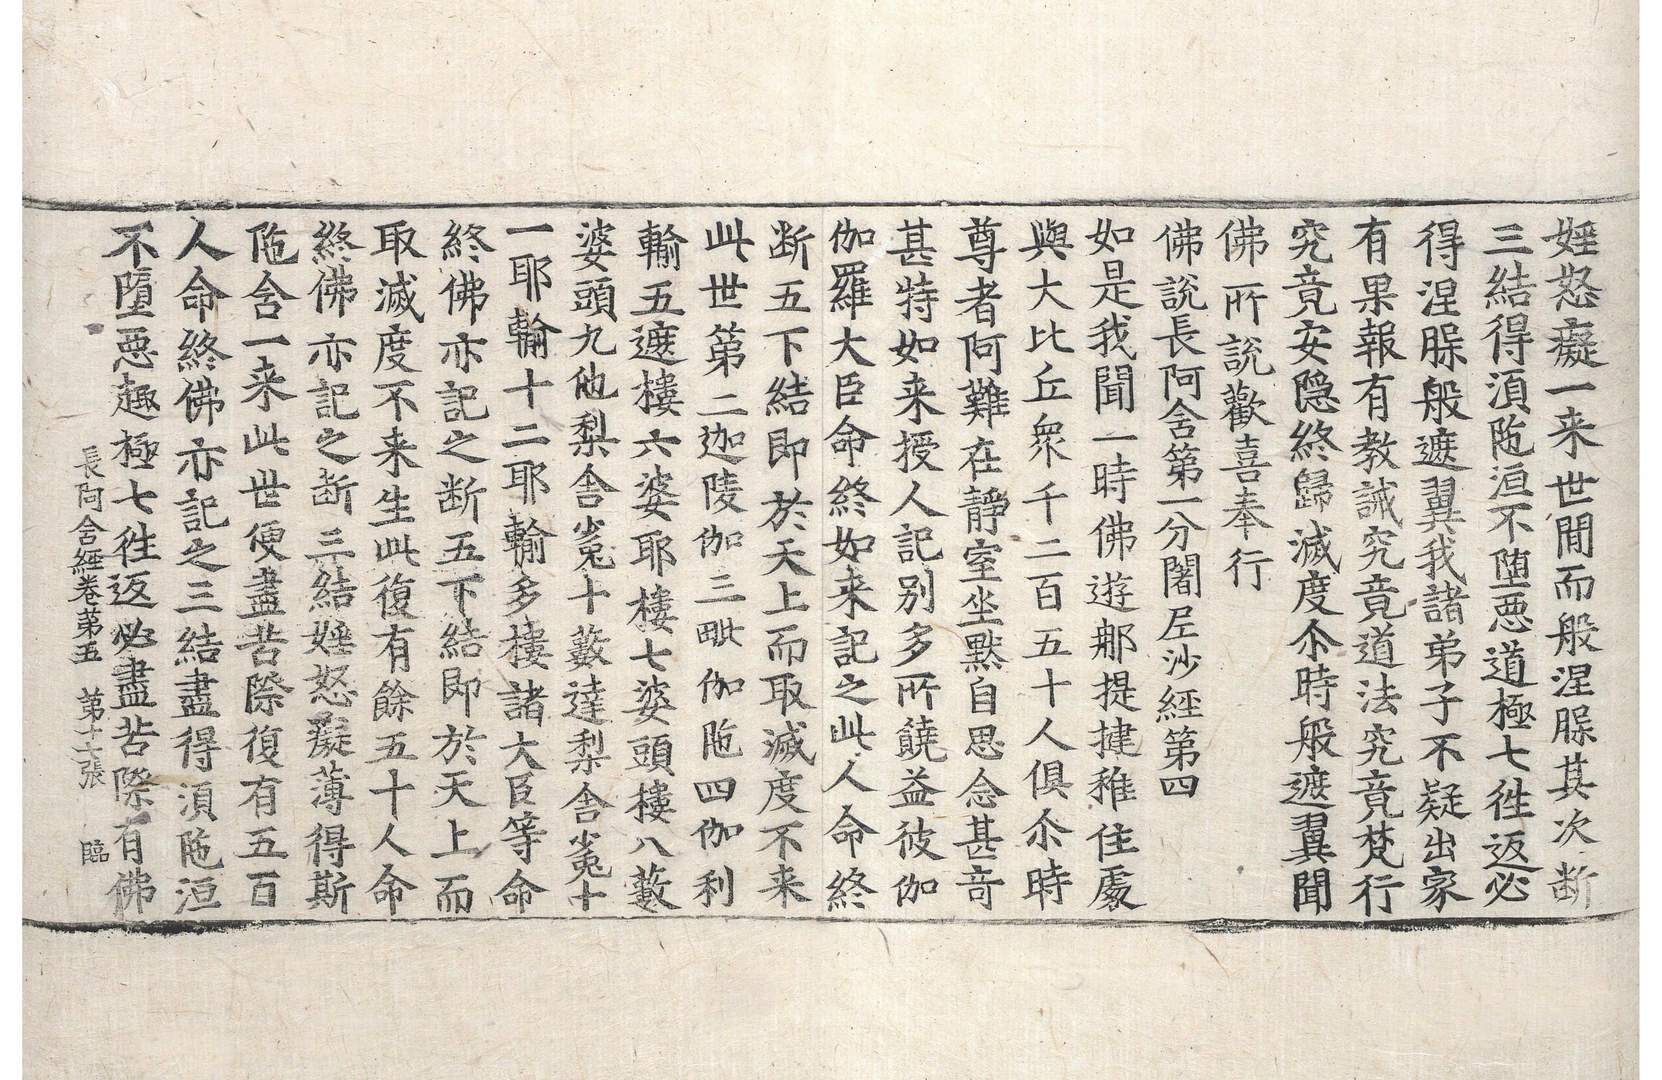 婬怒癡一来世間而般涅槃其次断
三結得湏陁洹不墮惡道極七徃返必
得涅槃般遮翼我諸弟子不疑出家
有果報有教誡究竟道法究竟梵行
究竟安隠終歸滅度尒時般遮翼聞
佛所說歡喜奉行
佛說長阿含第一分闍尼沙經第四
如是我聞一時佛遊那提揵稚住處
與大比丘衆千二百五十人俱尒時
尊者阿難在靜室坐黙自思念甚竒
甚特如来授人記別多所饒益彼伽
伽羅大臣命終如来記之此人命終
断五下結即於天上而取滅度不来
此世第二迦陵伽三毗伽陁四伽利
輸五遮樓六婆耶樓七婆頭樓八藪
婆頭九他梨舍㝹十藪達梨舍㝹十
一耶輸十二耶輸多樓諸大臣等命
終佛亦記之断五下結即於天上而
取滅度不来生此復有餘五十人命
終佛亦記之断三結婬怒癡薄得斯
陁含一来此世便盡苦際復有五百
人命終佛亦記之三結盡得湏陁洹
不墮惡趣極七徃返必盡苦際有佛
長阿含經卷第五　第十六張　臨